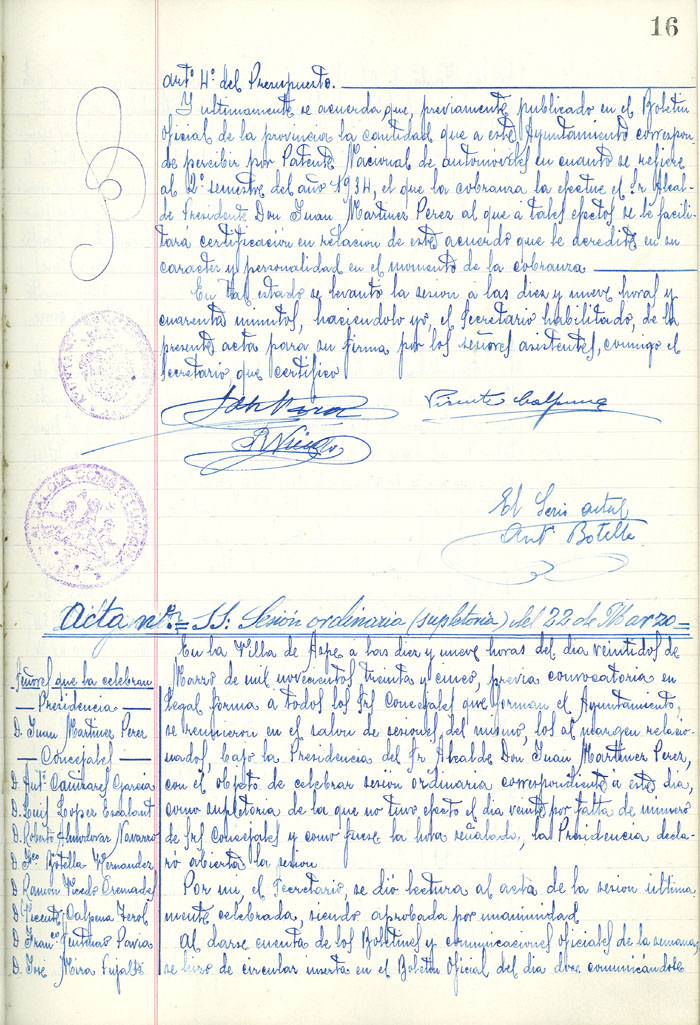 16
artº 4º del Presupuesto.
Y ultimamente se acuerda que, previamente publicado en el Boletin
Oficial de la provincia la cantidad que a este Ayuntamiento correspon-
de percibir por Patente Nacional de automoviles en cuanto se refiere
al 2º semestre del año 1934, el que la cobranza la efectue el Sr Alcal-
de Presidente Don Juan Martinez Perez al que a tales efectos se le facili-
tará certificación en relacion de este acuerdo que le acredite en su
caracter y personalidad en el momento de la cobranza
En tal estado se levanto la sesion a las diez y nueve horas y
cuarenta minutos, haciendolo yo, el Secretario habilitado, de la
presente acta para su firma por los señores asistentes, conmigo el
Secretario, que certifico
Vicente Calpena
R Vicedo
El Secrio actal
Antº Botella
ALCALDIA CONSTITUCIONAL
Acta nº.= 11: Sesión ordinaria (supletoria) del 22 de Marzo=
En la Villa de Aspe a las diez y nueve horas del dia veintidos de
Marzo de mil novecientos treinta y cinco, previa convocatoria en
legal forma a todos los Srs Concejales que forman el Ayuntamiento,
se reunieron en el salon de sesiones del mismo, los al margen relacio-
nados, bajo la Presidencia del Sr Alcalde Don Juan Martinez Perez,
con el objeto de celebrar sesión ordinaria correspondiente a este dia,
como supletoria de la que no tuvo efecto el dia veinte por falta de numero
de Srs Concejales y como fuese la hora señalada, la Presidencia decla-
ró abierta la sesion
Por mi, el Secretario, se dió lectura al acta de la sesion ultima-
mente celebrada, siendo aprobada por unanimidad
Al darse cuenta de los Boletines y comunicaciones oficiales de la semana,
se hizo de circular inserta en el Boletin Oficial del dia doce comunicándose
Señores que la celebran
Presidencia
D. Juan Martinez Perez
Concejales
D. Antº. Cañizares Garcia
D. Luis Lopez Escalant
D. Roberto Almodovar Navarro
D. Fco Botella Hernandez
D. Ramón Vicedo Cremades
D. Vicente Calpena Terol
D. Franco Pavia
D. José Mira Pujalte